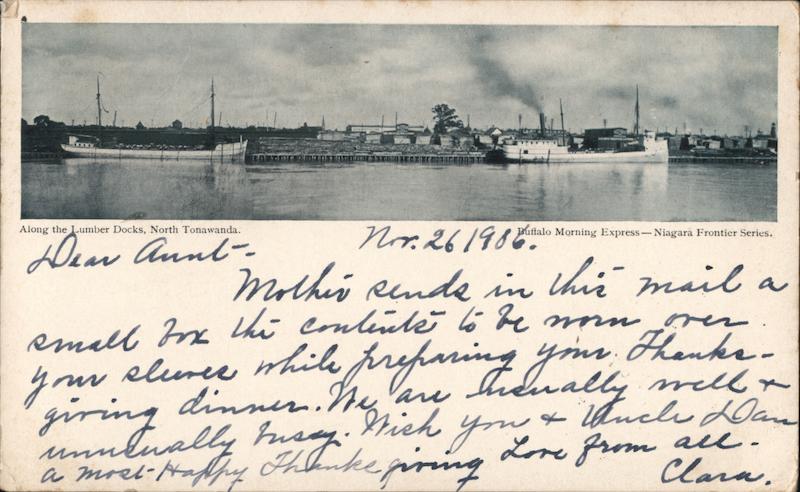 Along the Lumber Docks, North Tonawanda.
Buffalo Morning Express—Niagara Frontier Series.
Nov. 26 1906.
Dear Aunt-
Mother sends in this mail a
small box the contents to be worn over
your sleeves while preparing your Thanks-
giving dinner. We are usually well +
unusually busy. Wish you + Uncle Dan
a most Happy Thanksgiving Love from all-
Clara.